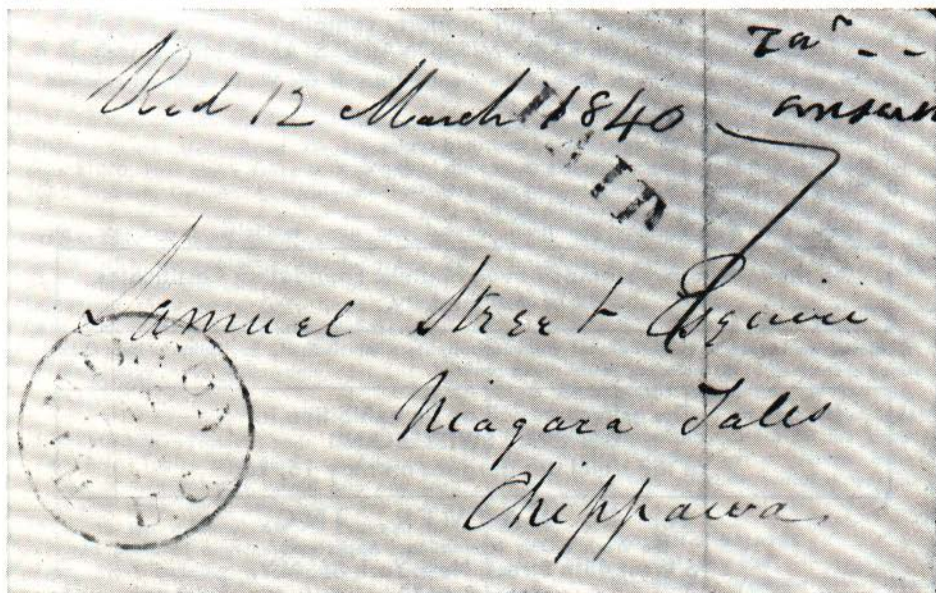 Recd 12 March 1840
PAID
Samuel Street Esquire
Niagara Falls
Chippawa
U.C.